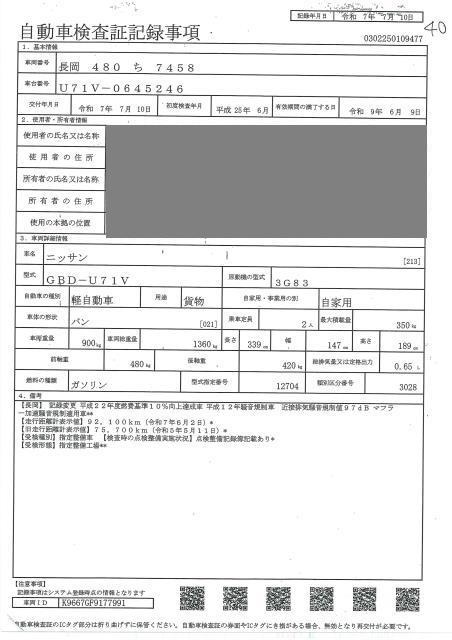 記録年月日 令和 7年 7月 10日
40
自動車検査証記録事項
0302250109477
1．基本情報
車両番号 長岡 480 ち 7458
車台番号 U71V-0645246
交付年月日 令和 7年 7月 10日 初度検査年月 平成 25年 6月 有効期間の満了する日 令和 9年 6月 9日
2．使用者・所有者情報
使用者の氏名又は名称
使用者の住所
所有者の氏名又は名称
所有者の住所
使用の本拠の位置
3．車両詳細情報
車名 ニッサン [213]
型式 GBD-U71V 原動機の型式 3G83
自動車の種別 軽自動車 用途 貨物 自家用・事業用の別 自家用
車体の形状 バン [021] 乗車定員 2人 最大積載量 350kg
車両重量 900kg 車両総重量 1360kg 長さ 339cm 幅 147cm 高さ 189cm
前軸重 480kg 後軸重 420kg 総排気量又は定格出力 0.65 L
燃料の種類 ガソリン 型式指定番号 12704 類別区分番号 3028
4．備考
【長岡】 記録変更 平成22年度燃費基準10％向上達成車 平成12年騒音規制車 近接排気騒音規制値97dB マフラ
ー加速騒音規制適用車**
【走行距離計表示値】92，100km（令和7年6月2日）*
【旧走行距離計表示値】75，700km（令和5年5月11日）*
【受検種別】指定整備車 【検査時の点検整備実施状況】点検整備記録簿記載あり*
【受検形態】指定整備工場**
【注意事項】
記録事項はシステム登録時点の情報となります
車両ID K9667GF9177991
自動車検査証のICタグ部分は折り曲げずに保管ください。自動車検査証の券面やICタグにき損がある場合、無効となり再交付が必要です。